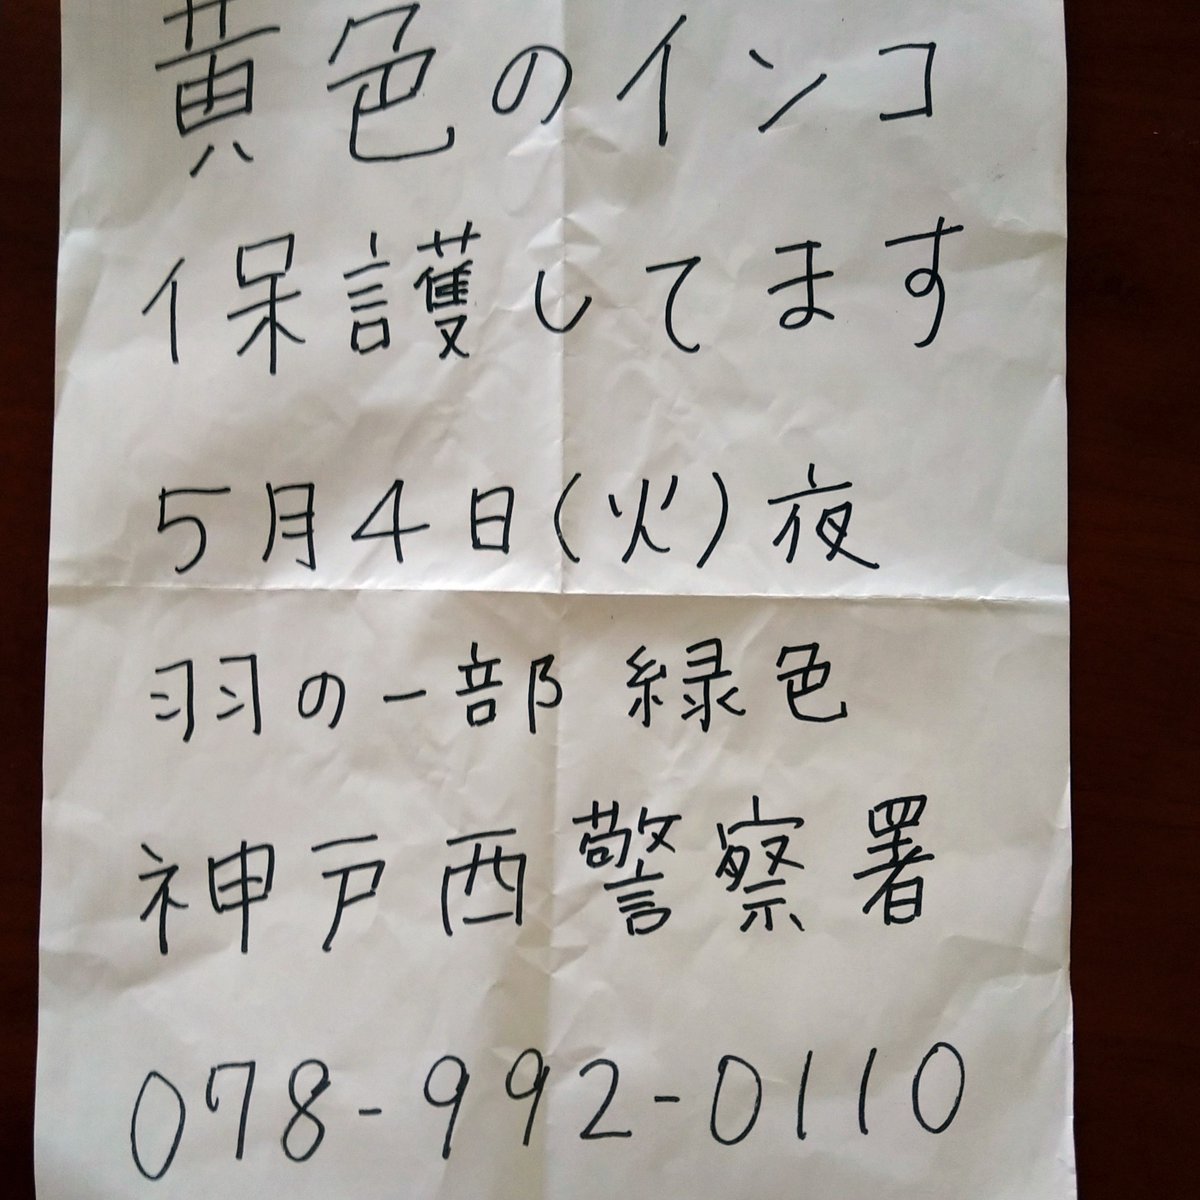 黄色のインコ
保護してます
5月4日(火)夜
羽の一部 緑色
神戸西警察署
078-992-0110